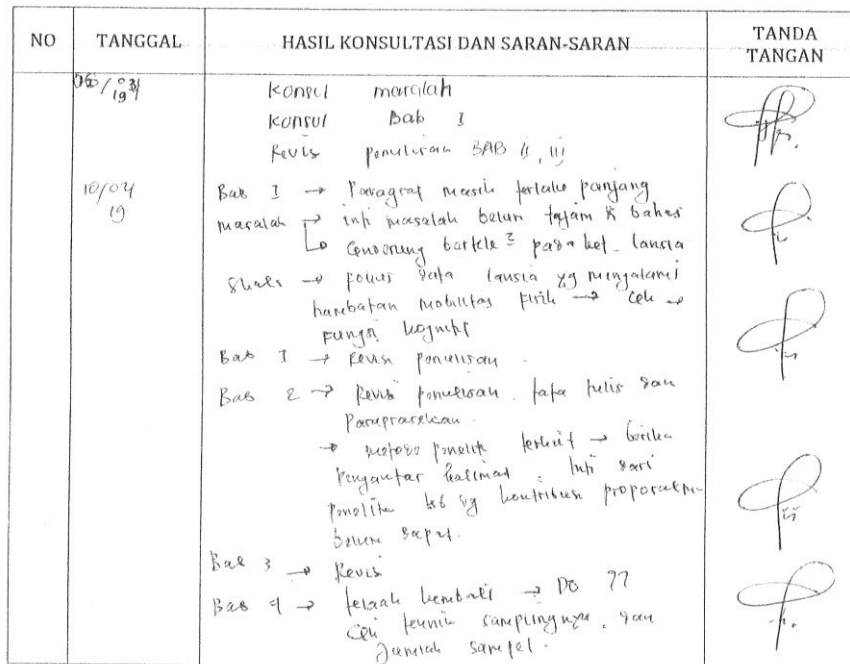 NO TANGGAL HASIL KONSULTASI DAN SARAN-SARAN TANDA TANGAN
Konsul masalah
Konsul Bab I
Revisi penulisan BAB II, III
10/04 19
Bab I → Paragraf masih terlalu panjang
masalah → inti masalah belum tajam & bahas
↳ Cenderung bertele² pada ket. lansia
→ fokus pada lansia yg mengalami
hambatan mobilitas fisik → Cek →
Fungsi kognitif
Bab I → Revisi penulisan.
Bab 2 → Revisi penulisan. tata tulis dan
Paraprasekan.
→ metode penelit terkait → berika
Pengantar kalimat. Inti dari
penelitian yg kontribusi proposal
belum dapat.
Bab 3 → Revisi
Bab 4 → telaah kembali → DO ??
Cek teknik samplingnya, dan
Jumlah sampel.